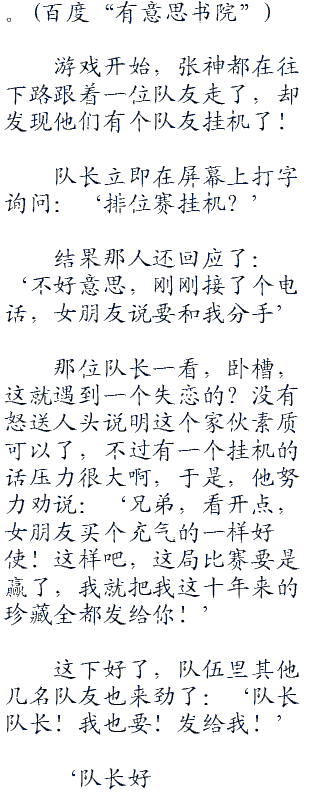 。(百度“有意思书院”)
游戏开始，张神都在往
下路跟着一位队友走了，却
发现他们有个队友挂机了！
队长立即在屏幕上打字
询问：‘排位赛挂机？’
结果那人还回应了：
‘不好意思，刚刚接了个电
话，女朋友说要和我分手’
那位队长一看，卧槽，
这就遇到一个失恋的？没有
怒送人头说明这个家伙素质
可以了，不过有一个挂机的
话压力很大啊，于是，他努
力劝说：‘兄弟，看开点，
女朋友买个充气的一样好
使！这样吧，这局比赛要是
赢了，我就把我这十年来的
珍藏全都发给你！’
这下好了，队伍里其他
几名队友也来劲了：‘队长
队长！我也要！发给我！’
‘队长好